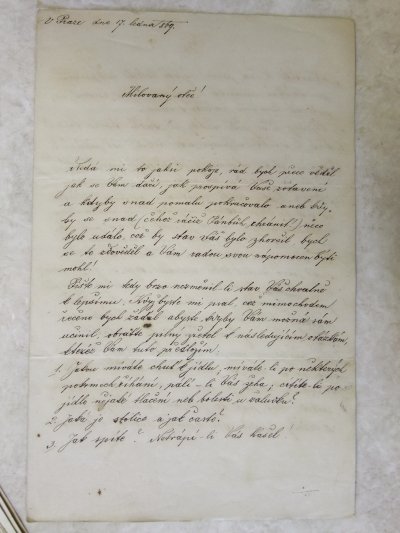 V Praze dne 17. ledna 869.
Milovaný otče!
Nedá mi to jakýs pokoje, rád bych přece věděl
jak se Vám daří, jak prospívá Vaše zotavení
a kdyby snad pomalu pokračovalo aneb kdy-
by se snad (čehož račiž Pánbůh chrániti) něco
bylo událo, což by stav Váš bylo zhoršil bych
se to dověděl a Vám radou svou nápomocen býti
mohl!
Pište mi tedy brzo nezměnil-li se stav Váš chvalně
k lepšímu. Abyste mi psal, což mimochodem
řečeno bych žádal abyste, kdyby Vám možná sám
učinil, obraťte pilný zřetel k následujícím otázkám,
kteréž Vám tuto předložím.
1. Jakou míváte chuť k jídlu, míváte-li po některých
pokrmech říhání, pálí-li Vás žáha; cítíte-li po
jídle nějaké tlačení neb bolesti v žaludku?
2. Jaká je stolice a jak častá?
3. Jak spíte? Netrápí-li Vás kašel?